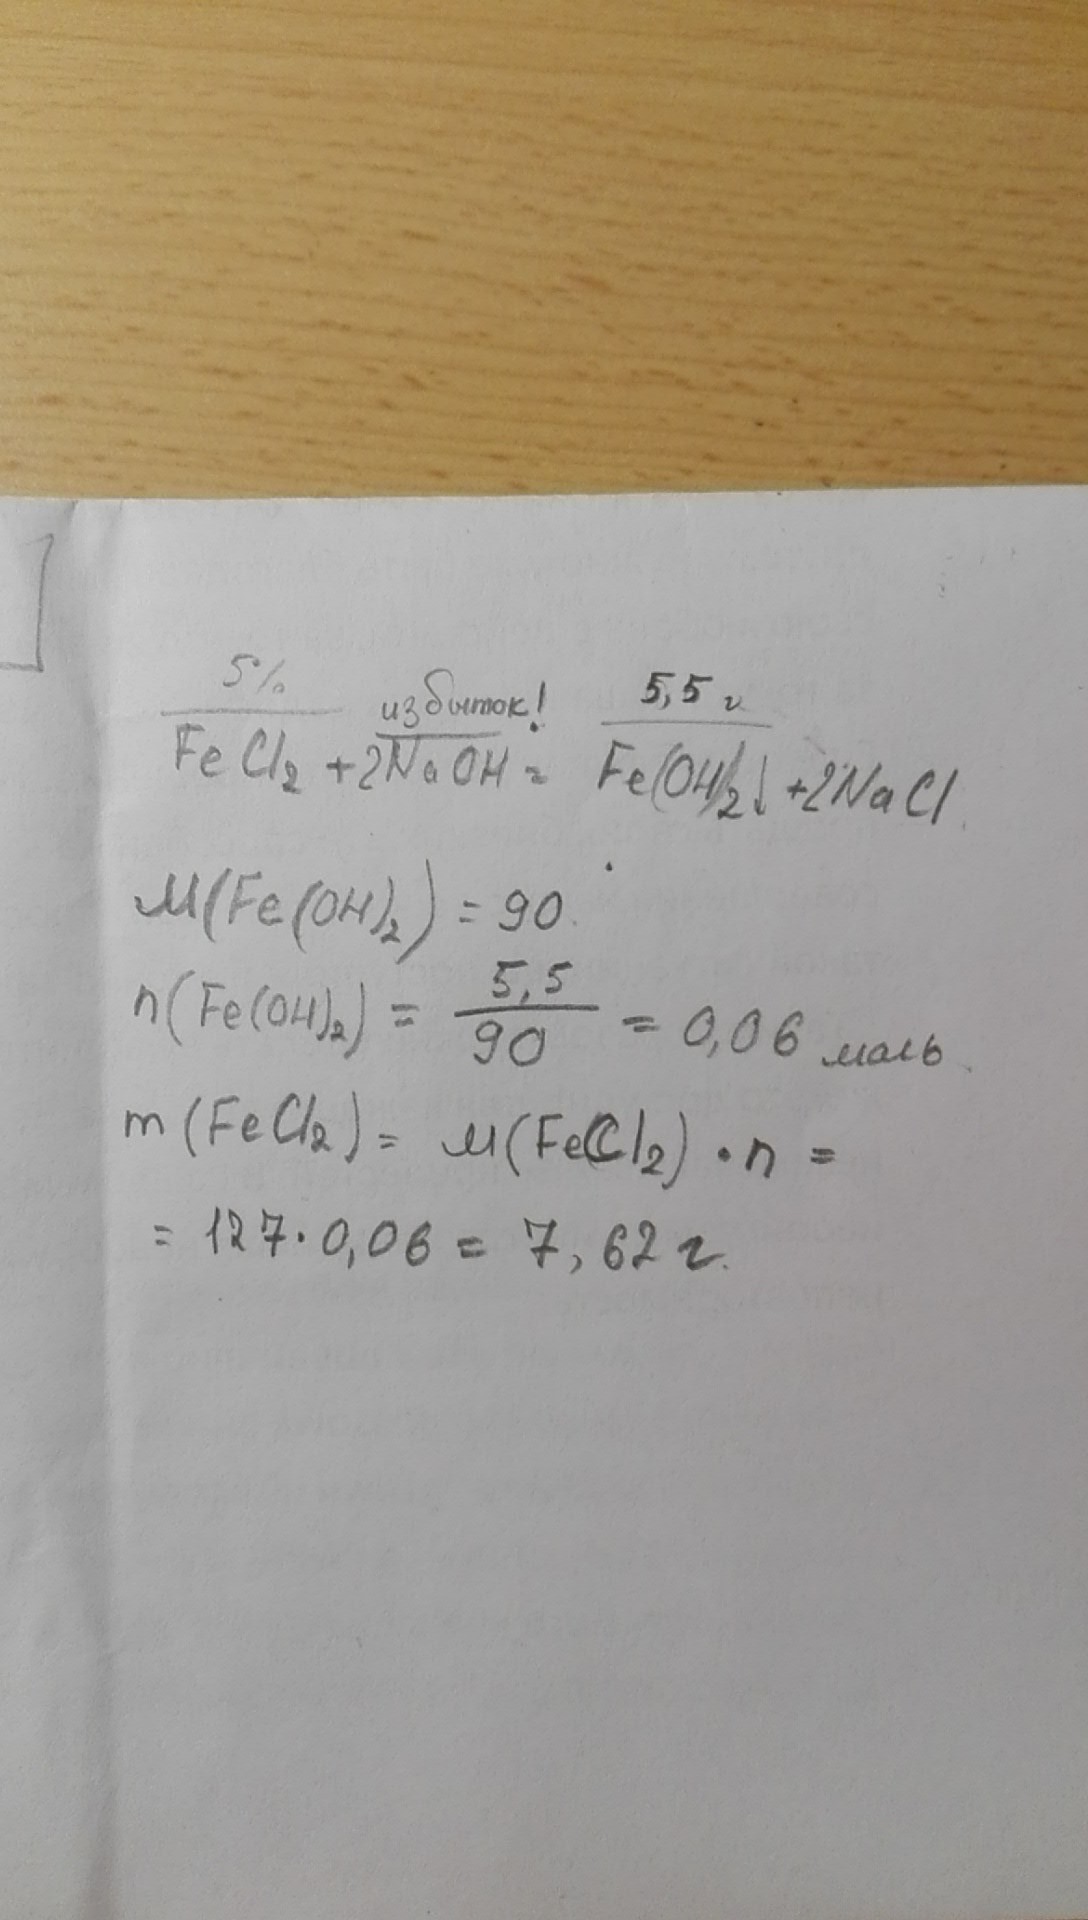 5% избыток! 5,5 г
FeCl₂ + 2NaOH = Fe(OH)₂↓ + 2NaCl
M(Fe(OH)₂) = 90.
n(Fe(OH)₂) = 5,5/90 = 0,06 моль.
m(FeCl₂) = M(FeCl₂) · n =
= 127 · 0,06 = 7,62 г.